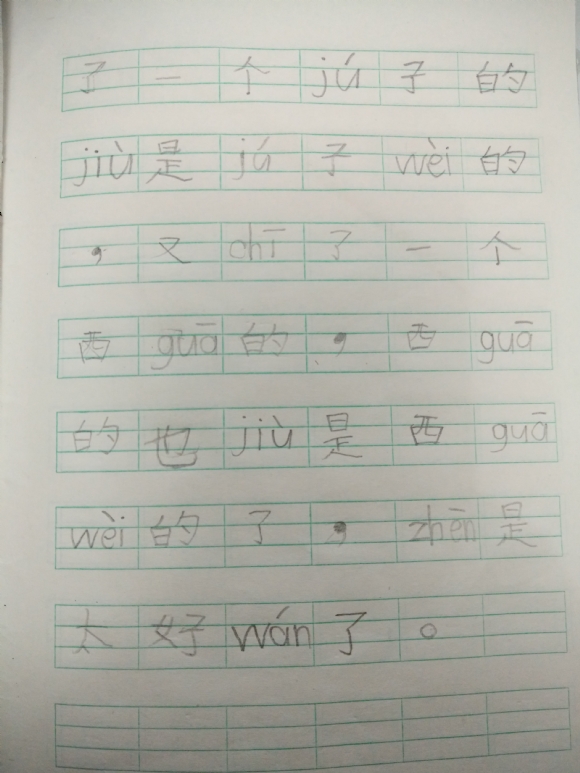 了一个jú子的
jiù是jú子wèi的
，又chī了一个
西guā的，西guā
的也jiù是西guā
wèi的了，zhēn是
太好wán了。